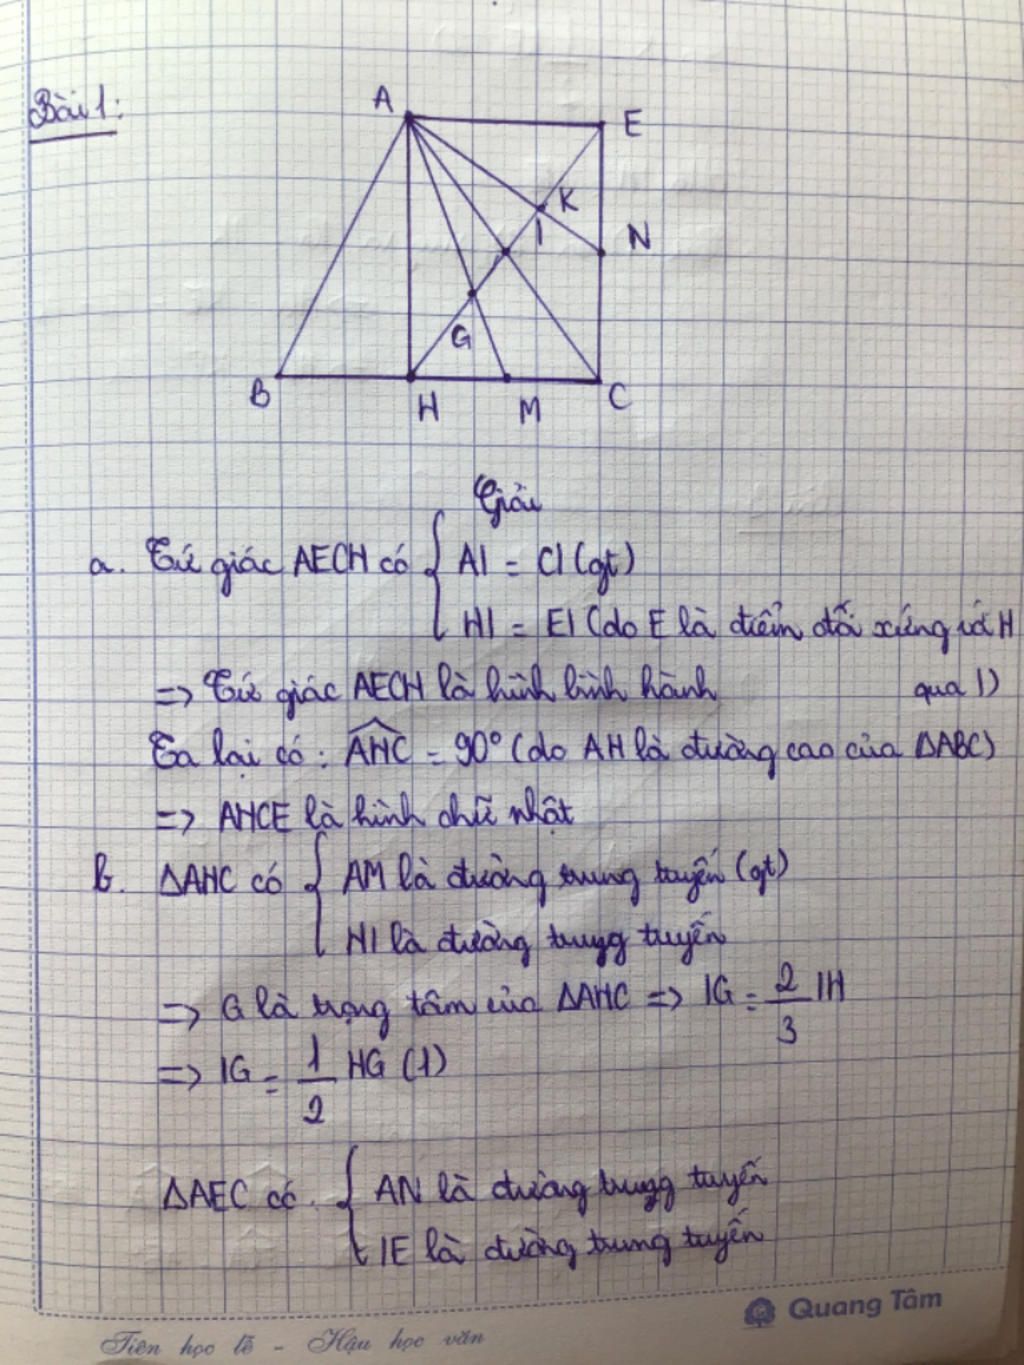 Bài 1:
A
E
K
I
N
G
B
H
M
C
Giải
a. Tứ giác AECH có { AI = CI (gt)
HI = EI (do E là điểm đối xứng với H
=> Tứ giác AECH là hình bình hành qua I)
Ta lại có : AHC = 90° (do AH là đường cao của ΔABC)
=> AHCE là hình chữ nhật
b. ΔAHC có { AM là đường trung tuyến (gt)
HI là đường trung tuyến
=> G là trọng tâm của ΔAHC => IG = 2/3 IH
=> IG = 1/2 HG (1)
ΔAEC có { AN là đường trung tuyến
IE là đường trung tuyến
Quang Tâm
Tiên học lễ - Hậu học văn